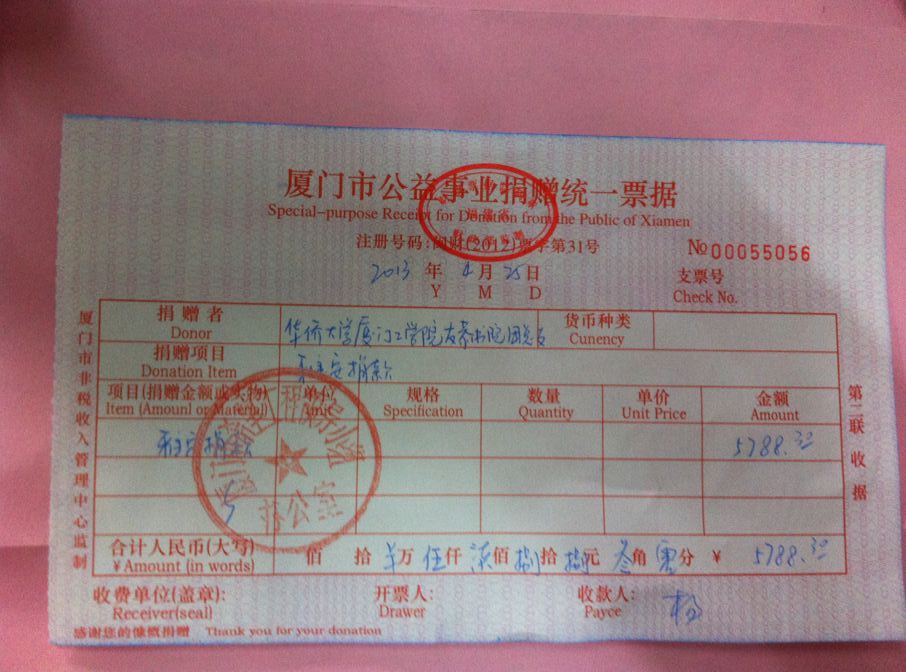 厦门市公益事业捐赠统一票据
Special-purpose Receipt for Donation from the Public of Xiamen
注册号码:闽财(2012)票字第31号
№00055056
2013 年 4 月 25 日
Y M D
支票号
Check No.
捐赠者
Donor
华侨大学厦门工学院 团总支
货币种类
Cunency
捐赠项目
Donation Item
捐款
项目(捐赠金额或实物)
Item (Amounl or Material)
单位
Unit
规格
Specification
数量
Quantity
单价
Unit Price
金额
Amount
捐款
5788.30
合计人民币(大写)
¥Amount (in words)
佰 拾 万 伍仟 柒佰 捌拾 捌元 叁角 零分 ¥ 5788.30
收费单位(盖章):
Receiver(seal)
开票人:
Drawer
收款人:
Payce
杨
感谢您的慷慨捐赠 Thank you for your donation
厦门市非税收入管理中心监制
第二联 收据
办公室